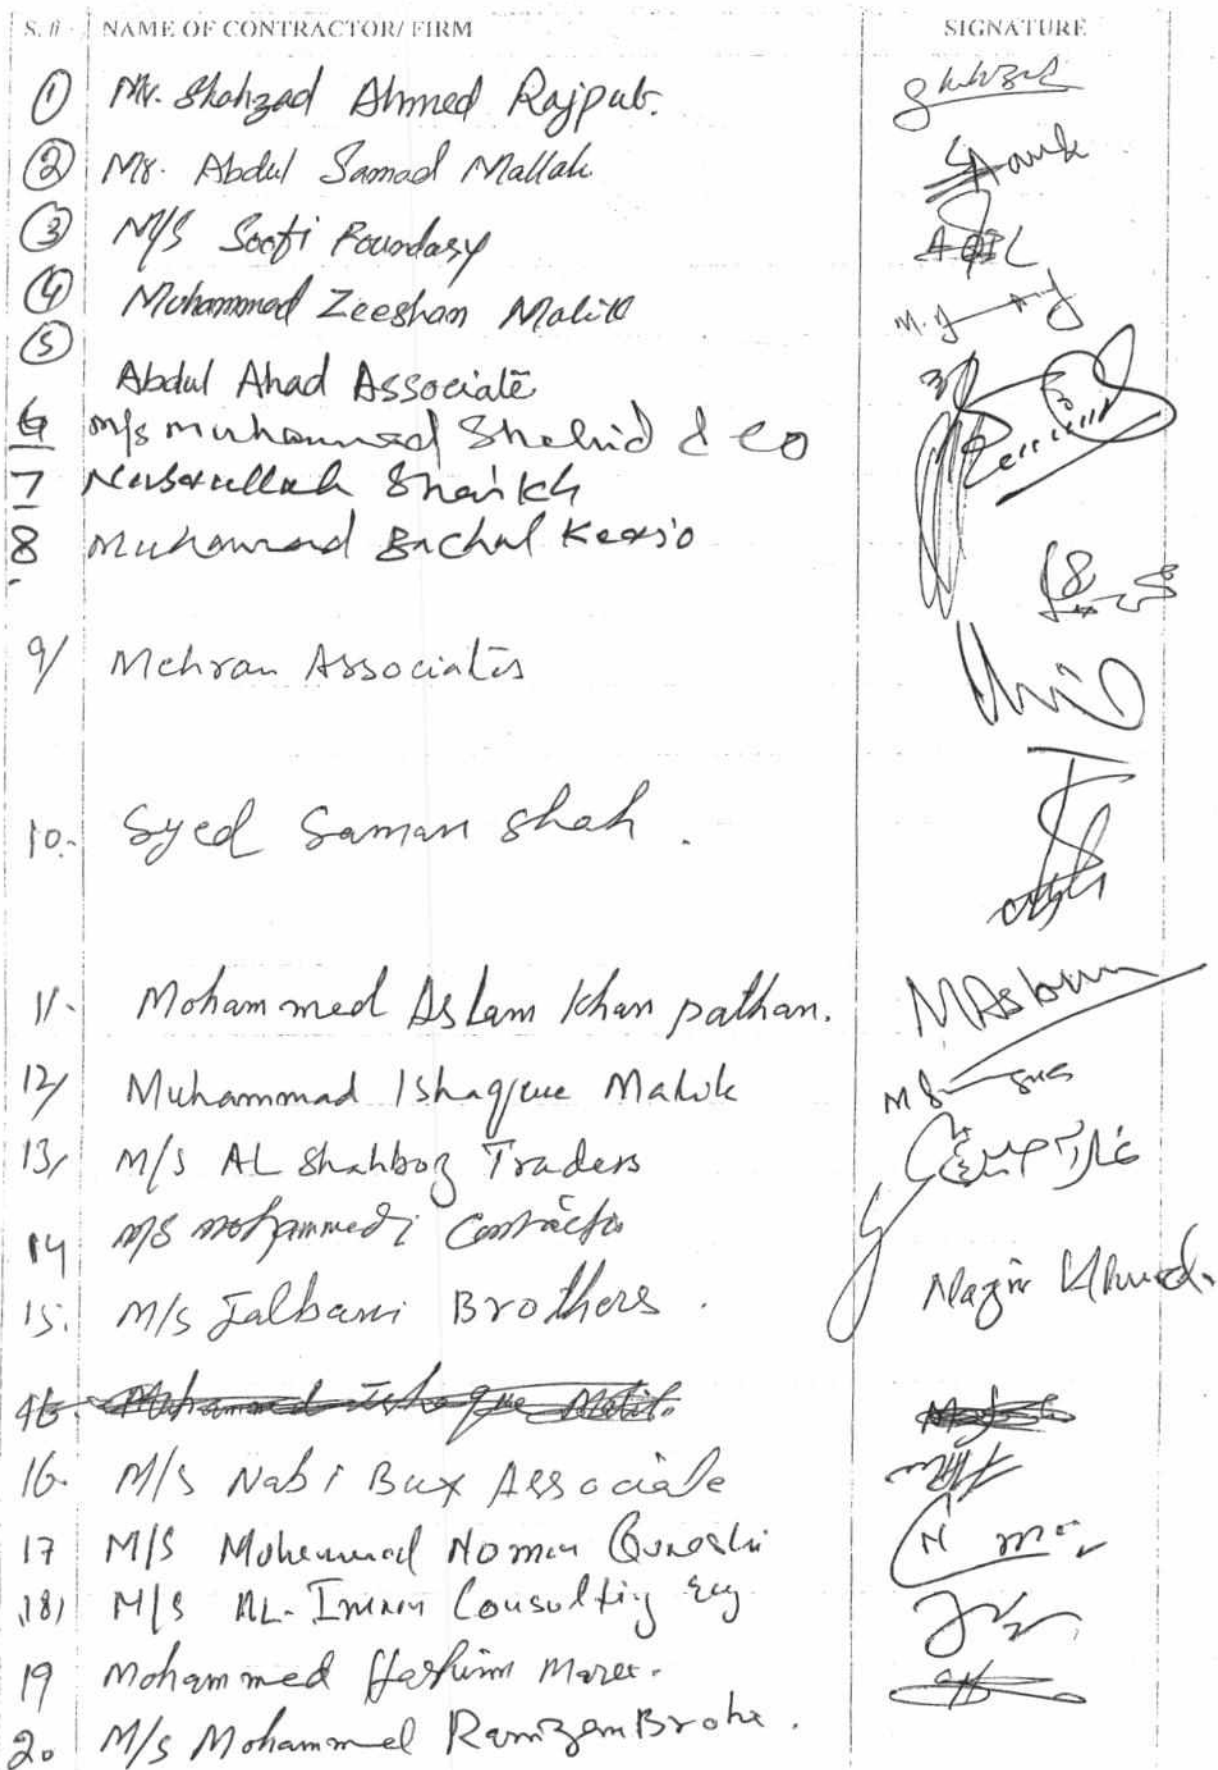 S. # NAME OF CONTRACTOR/ FIRM SIGNATURE
① Mr. Shahzad Ahmed Rajput.
② Mr. Abdul Samad Mallah
③ M/S Soofi Foundary AQIL
④ Muhammad Zeeshan Malik
⑤ Abdul Ahad Associate
6 M/s Muhammad Shahid & Co
7 Nasarullah Shaikh
8 Muhammad Bachal Keerio
9/ Mehran Associates
10.- Syed Saman Shah .
11- Mohammed Aslam Khan pathan. MAslam
12/ Muhammad Ishaque Malik
13, M/S AL Shahbaz Traders
14 M/S Mohammedi Contractor
15. M/s Jalbani Brothers . Nazir Ahmed.
16. M/S Nabi Bux Associate
17 M/S Mohammad Noman Qureshi
18) M/S AL-Imran Consulting Eng
19 Mohammed Hashim
20 M/S Mohammed Ramzan Brohi .